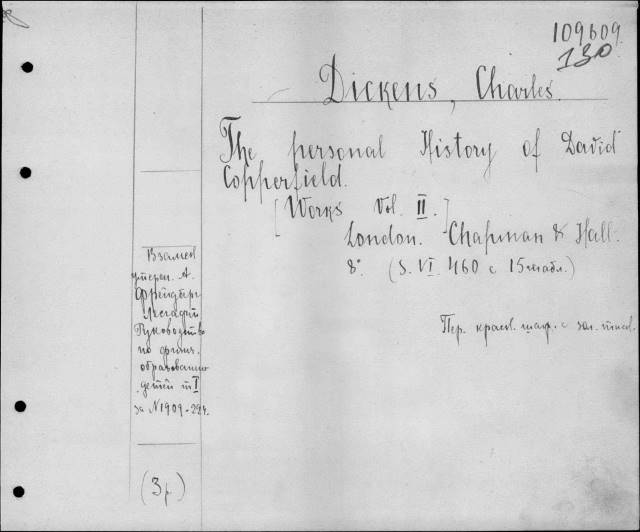 109609.
130
Dickens, Charles.
The personal History of David
Copperfield.
[Works Vol. II.]
London. Chapman & Hall.
8° (S. VI. 460 с 15
Пер. красн. с зол. тисн.
Взамен
утерян. А.
Лесгафт
Руководство
по физич.
образованию
детей т I
за N 1909-
(3р)